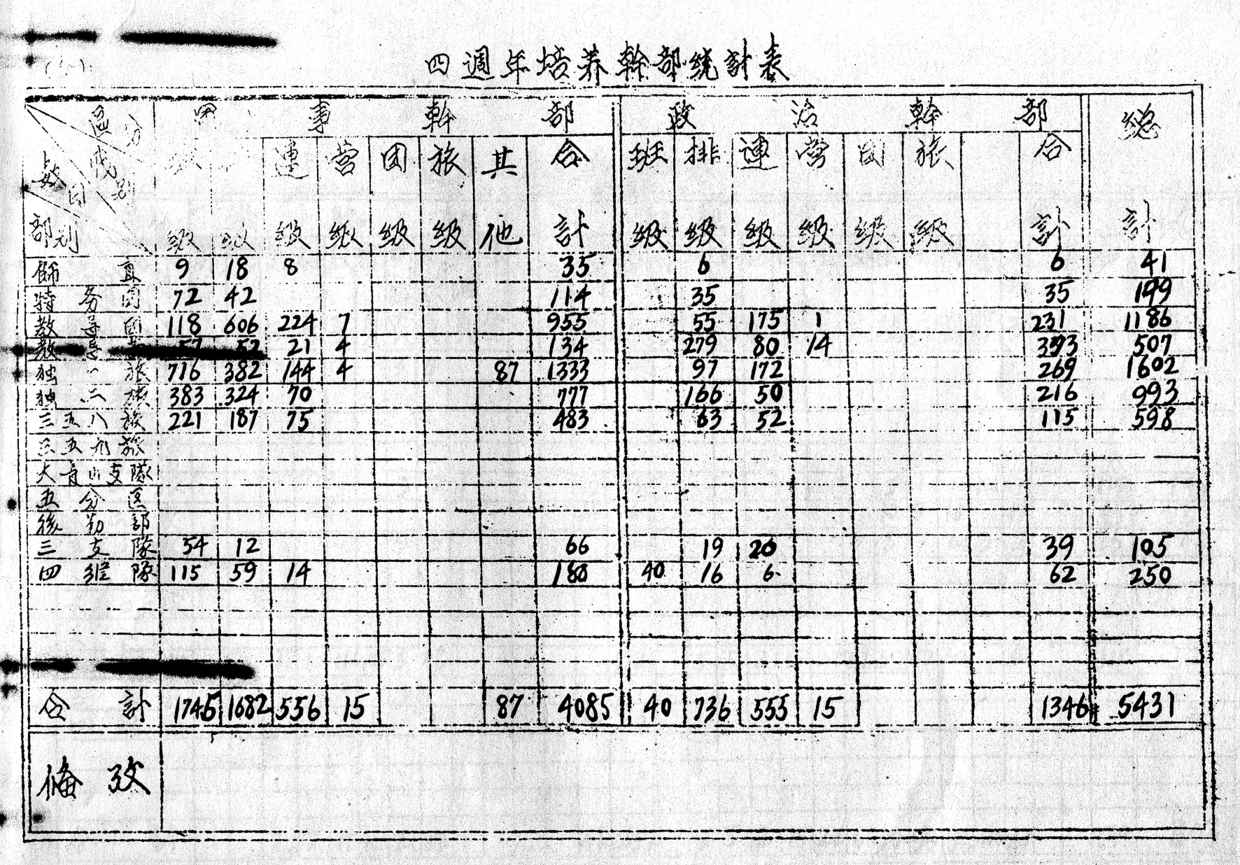 四週年培养幹部統計表
區分 軍事幹部 政治幹部 総計
級别
数目
部别 級 級 連級 营級 団級 旅級 其他 合計 班級 排級 連級 营級 団級 旅級 合計
師直 9 18 8 35 6 6 41
特务団 72 42 114 35 35 149
教导団 118 606 224 7 955 55 175 1 231 1186
教导 57 52 21 4 134 279 80 14 373 507
独一旅 716 382 144 4 87 1333 97 172 269 1602
独二旅 383 324 70 777 166 50 216 993
三五八旅 221 187 75 483 63 52 115 598
三五九旅
大青山支隊
五分区
後勤部
三支隊 54 12 66 19 20 39 105
四縱隊 115 59 14 188 40 16 6 62 250
合計 1745 1682 556 15 87 4085 40 736 555 15 1346 5431
俻攷